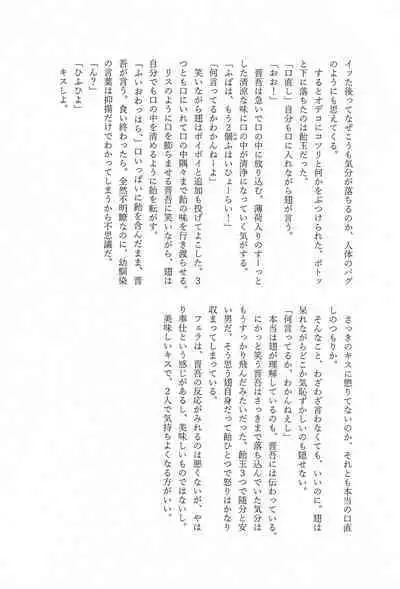 イッた後ってなぜこうも気分が落ちるのか、人体のバグ
のようにも思えてくる。
するとオデコにコツリと何かをぶつけられた。ポトッ
と下に落ちたのは飴玉だった。
「口直し」自分も口に入れながら翅が言う。
「おお！」
晋吾は急いで口の中に放り込む。薄荷入りのすーっと
した清涼な味に口の中が清浄になっていく気がする。
「ふばは、もう２個ふはいひょーらい！」
「何言ってるかわかんねーよ」
笑いながら翅はポイポイと追加も投げてよこした。３
つとも口にいれて口の中隅々まで飴の味を行き渡らせる。
リスのように口を膨らませる晋吾に笑いながら、翅は
自分でも口の中を清めるように飴を転がす。
「ふいおわっはら、」口いっぱいに飴を含んだまま、晋
吾が言う。食い終わったら。全然不明瞭なのに、幼馴染
の言葉は抑揚だけでわかってしまうから不思議だ。
「ん？」
「ひふひよ」
キスしよ。
さっきのキスに懲りてないのか、それとも本当の口直
しのつもりか。
そんなこと、わざわざ言わなくても、いいのに。翅は
呆れながらどこか気恥ずかしいのも隠せない。
「何言ってるか、わかんねえし」
本当は翅が理解しているのも、晋吾には伝わっている。
にかっと笑う晋吾はさっきまで落ち込んでいた気分は
もうすっかり飛んだみたいだった。飴玉３つで随分と安
い男だ、そう思う翅自身だって飴ひとつで怒りはかなり
収まってしまっている。
フェラは、晋吾の反応がみれるのは悪くないが、やは
り奉仕という感じがあるし、美味しいものではないし。
美味しいキスで、２人で気持ちよくなる方がいい。